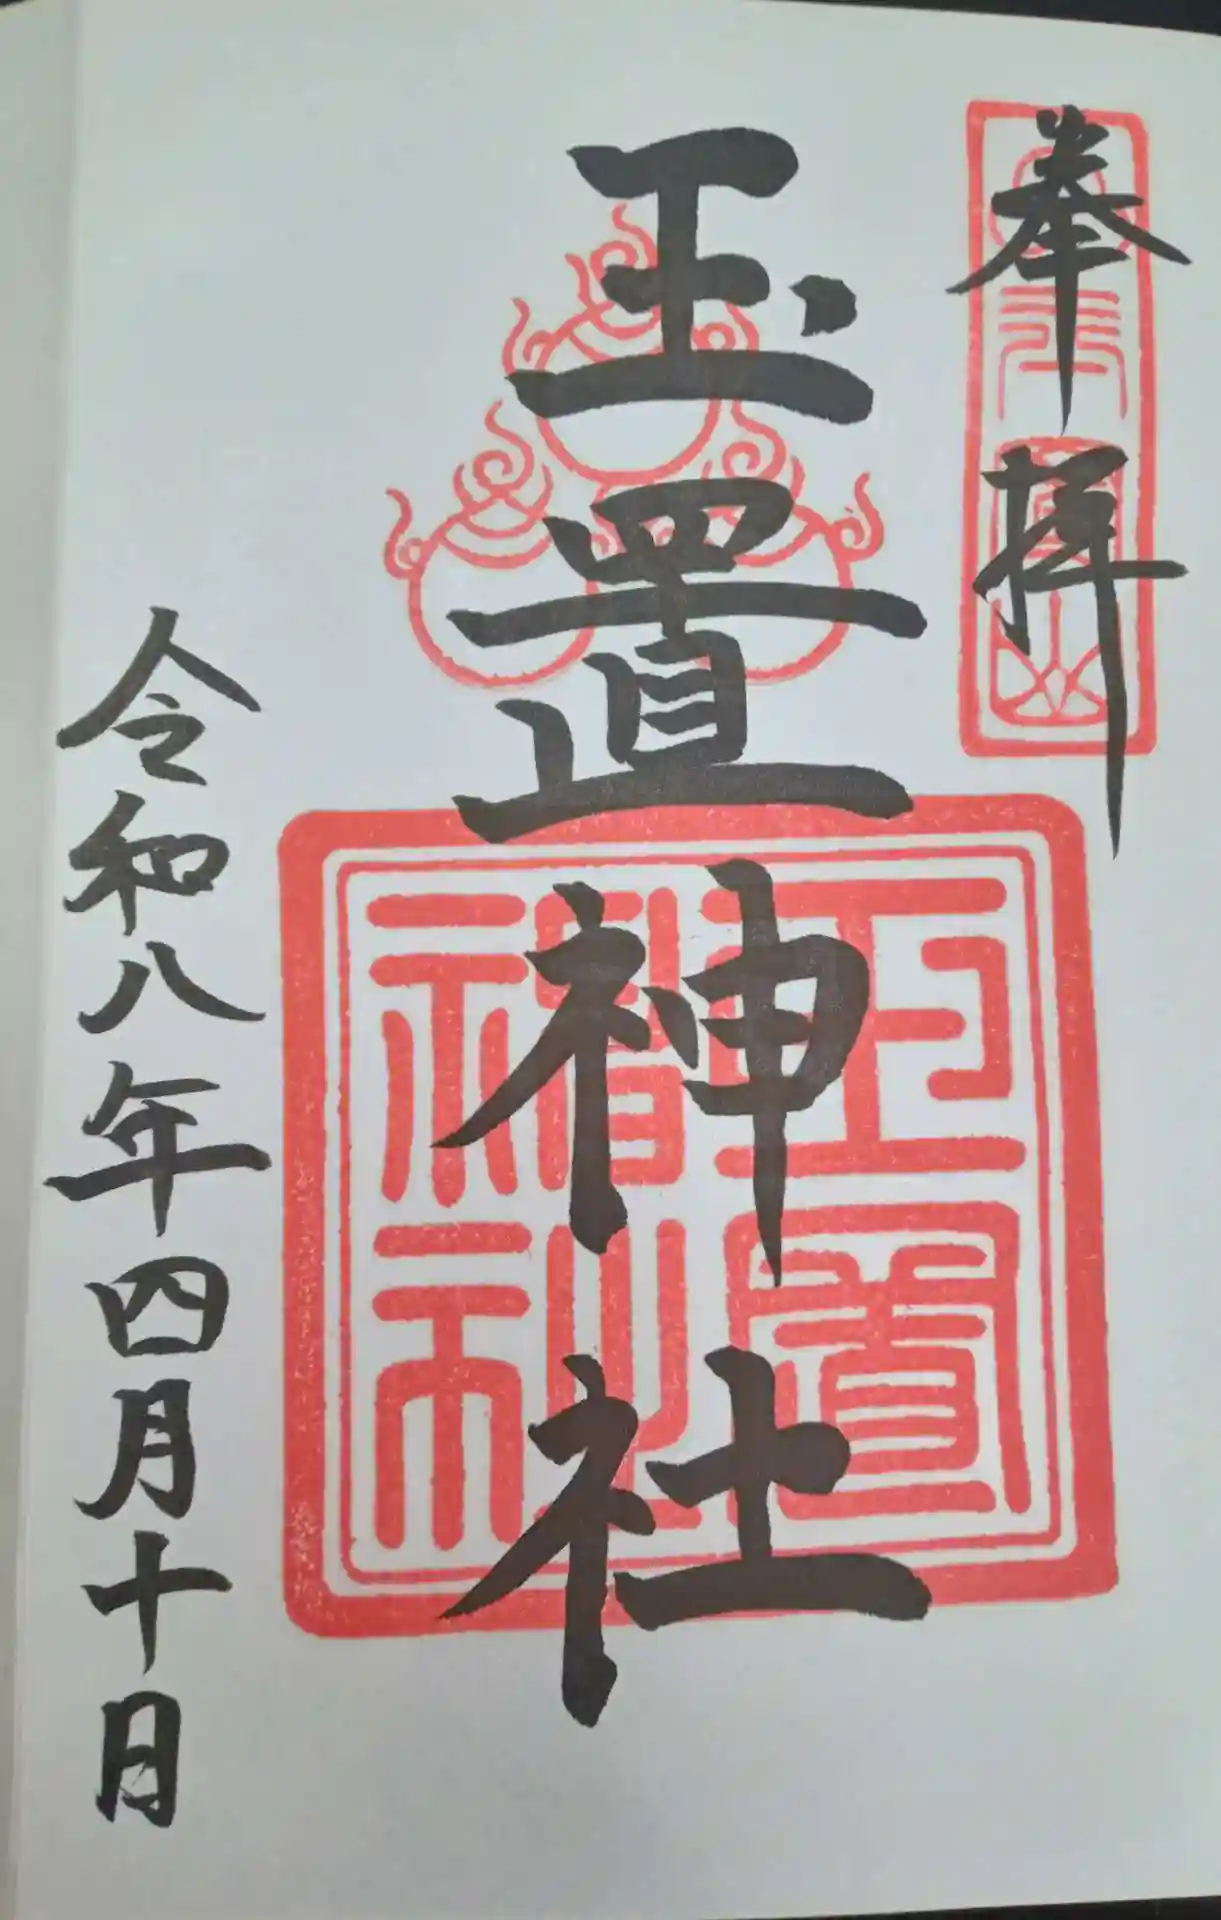 奉拝
玉置神社
玉置神社
令和八年四月十日